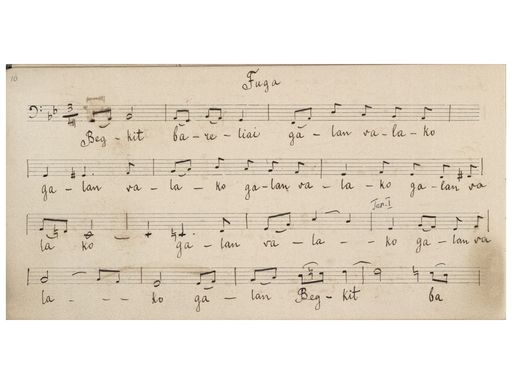 16
Fuga
3
4
Beg-kit ba-re-liai ga-lan va-la-ko
ga-lan va-la-ko ga-lan va-la-ko ga-lan va
Ten. I
la-ko ga-lan va-la-ko ga-lan va
la---ko ga-lan Beg-kit ba